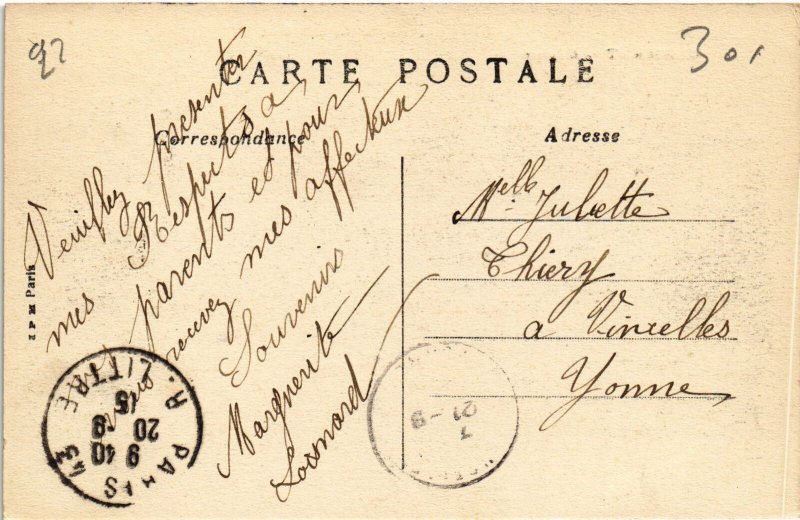 92
301
CARTE POSTALE
Correspondance
Adresse
Veuillez présenter
mes Respects à
parents et pour
vous recevez mes affectueux
Souvenirs
Marguerite
Losmard
Melle Juliette
Thiery
a Vincelles
Yonne
Paris
PARIS 43
R. LITTRE
9 40
20 - 9
15
7
21 - 9